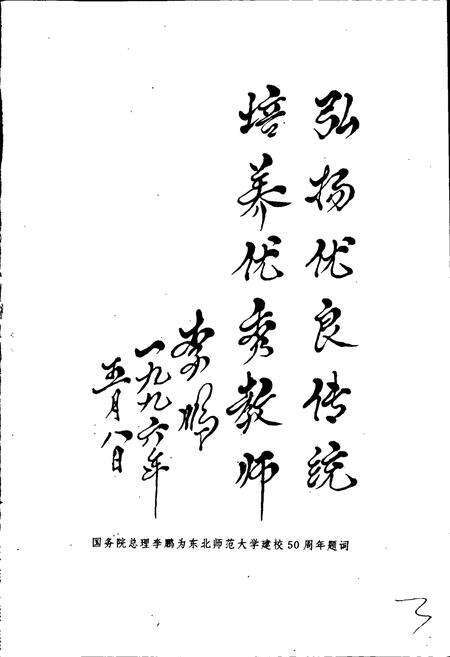 弘扬优良传统
培养优秀教师
李鹏
一九九六年
五月八日
国务院总理李鹏为东北师范大学建校50周年题词
3